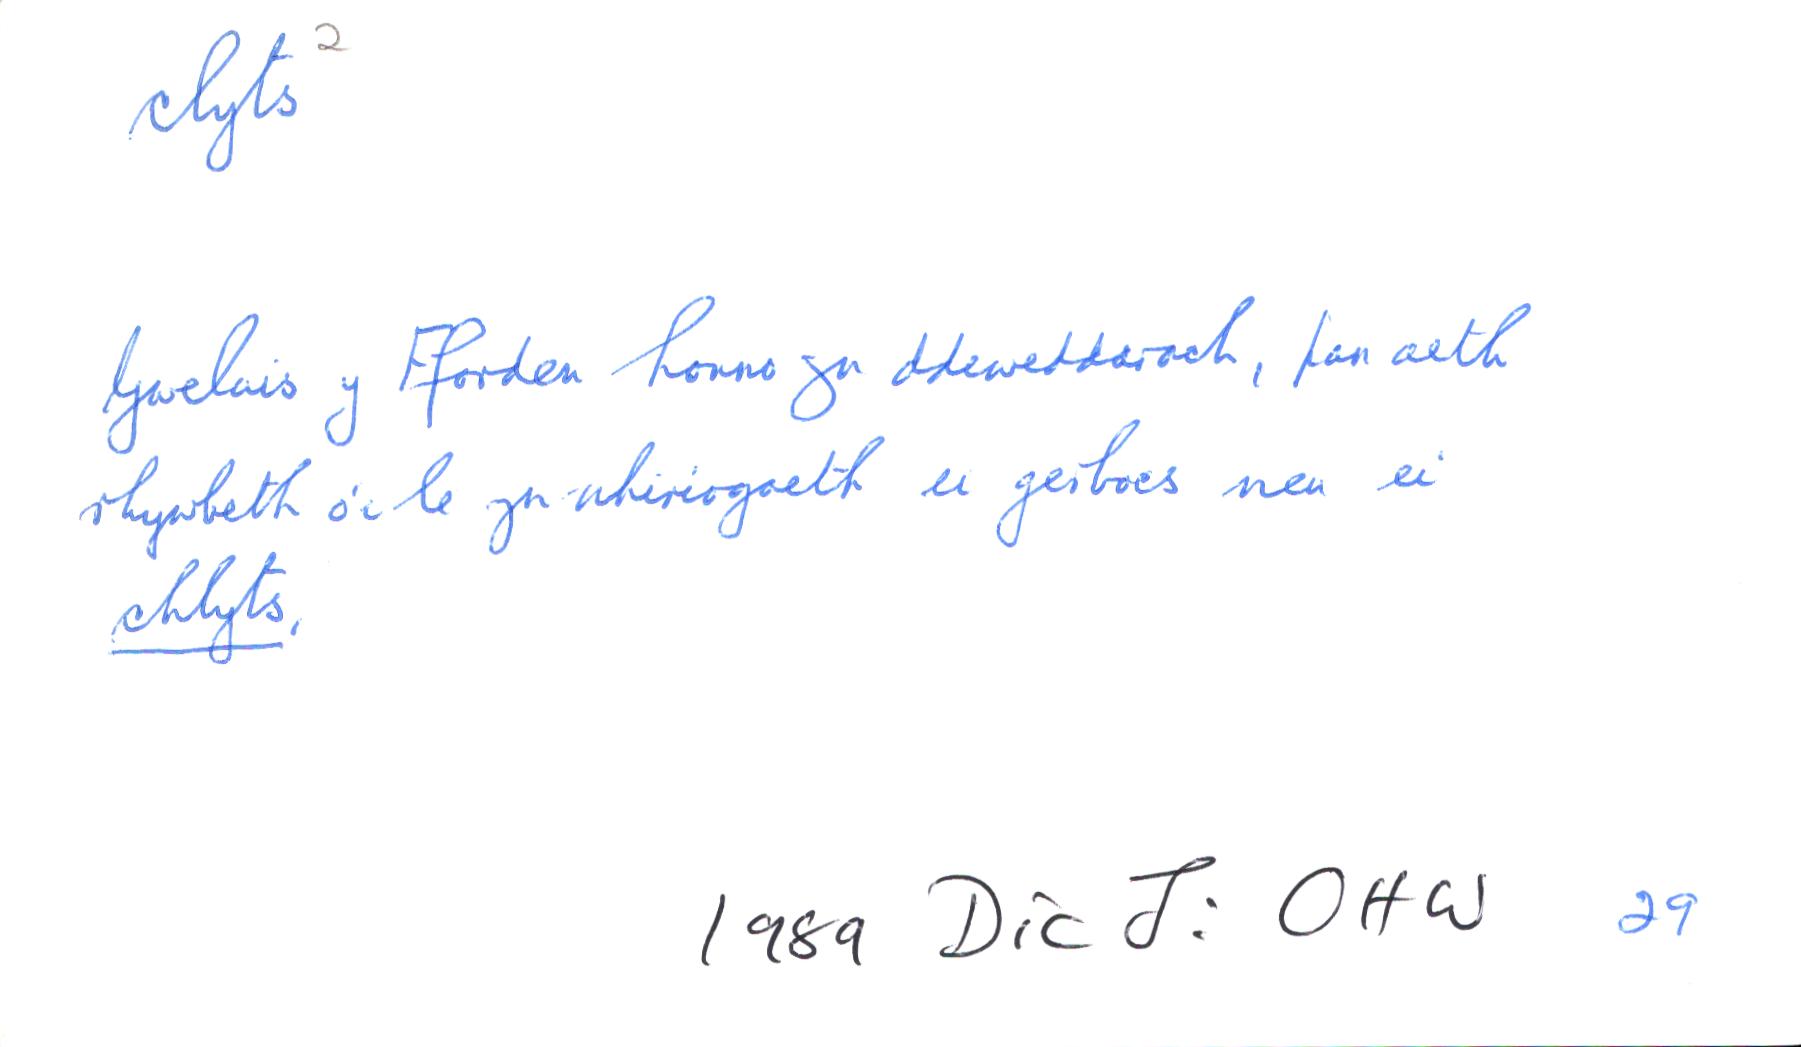 clyts 2
Gwelais y Fforden honno yn ddiweddarach, pan aeth
rhywbeth o'i le ym mheirioqaeth ei gerbocs neu ei
chlyts.
1989 Dic J: OHW 29